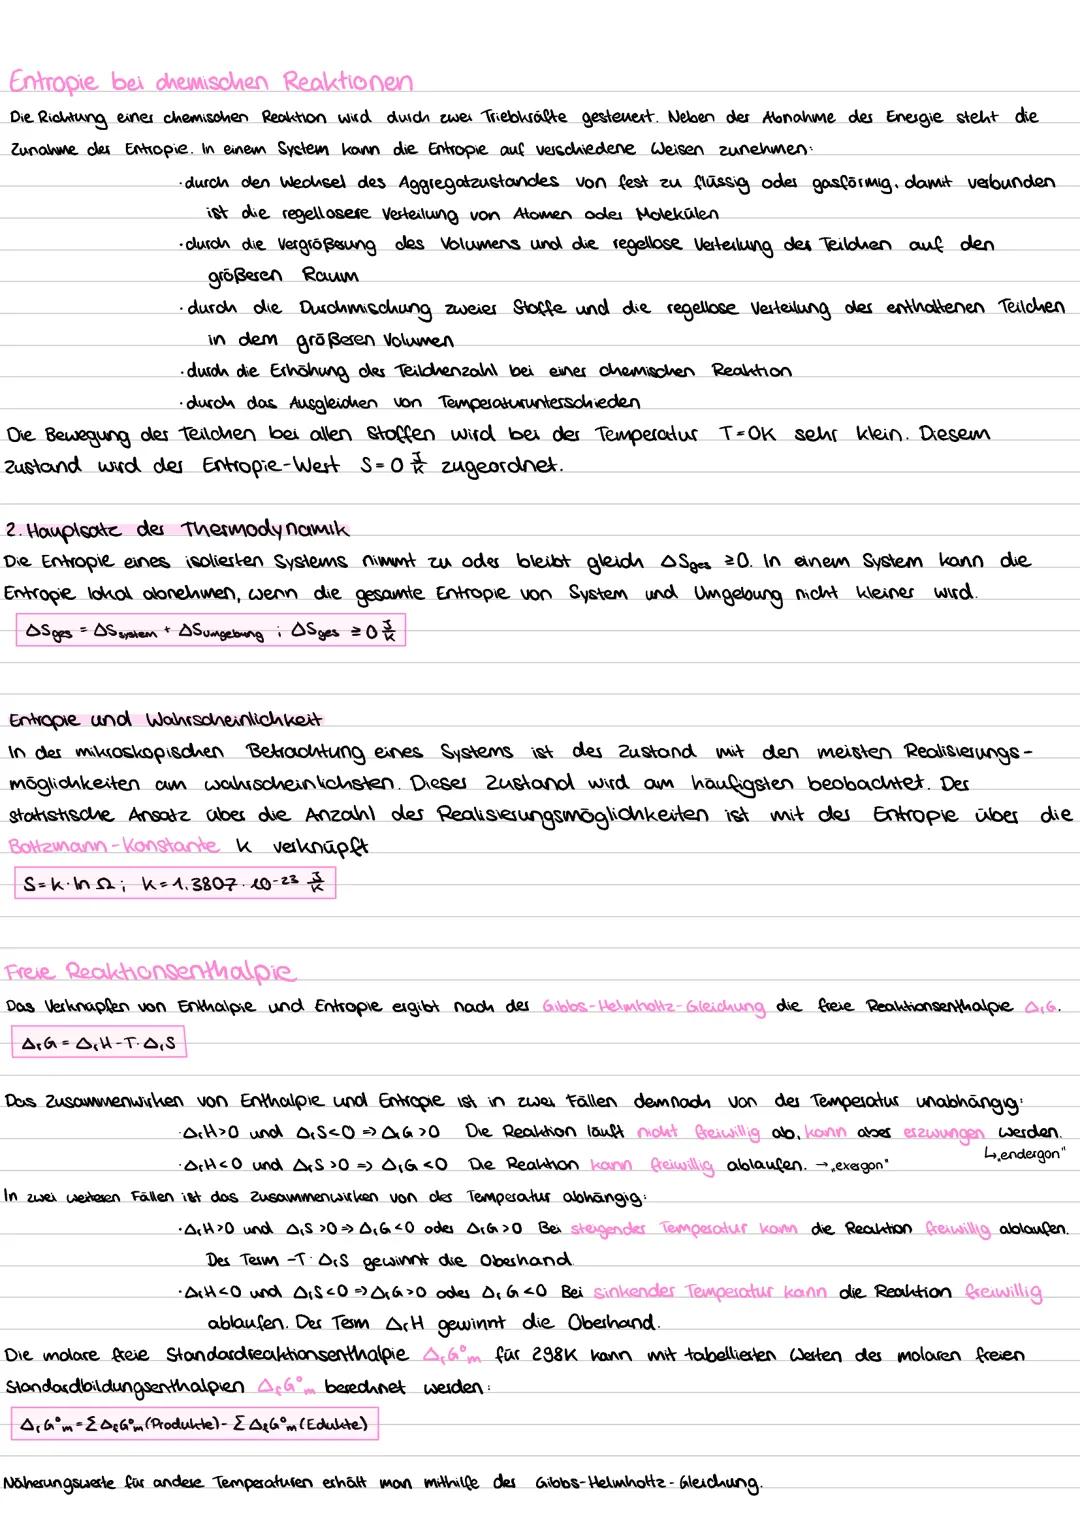 Entropie bei chemischen Reaktionen
Die Richtung einer chemischen Reaktion wird durch zwei Triebkräfte gesteuert. Neben der Abnahme der Energie steht die
Zunahme der Entropie. In einem System kann die Entropie auf verschiedene Weisen zunehmen:
· durch den Wechsel des Aggregatzustandes von fest zu flüssig oder gasförmig, damit verbunden
ist die regellosere Verteilung von Atomen oder Molekülen
· durch die Vergrößerung des Volumens und die regellose Verteilung der Teilchen auf den
größeren Raum
· durch die Durchmischung zweier Stoffe und die regellose Verteilung der enthaltenen Teilchen
in dem größeren Volumen
· durch die Erhöhung der Teilchenzahl bei einer chemischen Reaktion
· durch das Ausgleichen von Temperaturunterschieden
Die Bewegung der Teilchen bei allen Stoffen wird bei der Temperatur T=0K sehr klein. Diesem
Zustand wird der Entropie-Wert S=0 J/K zugeordnet.
2. Hauptsatz der Thermodynamik
Die Entropie eines isolierten Systems nimmt zu oder bleibt gleich ΔSges ≥0. In einem System kann die
Entropie lokal abnehmen, wenn die gesamte Entropie von System und Umgebung nicht kleiner wird.
ΔSges = ΔSsystem + ΔSumgebung ; ΔSges ≥ 0 J/K
Entropie und Wahrscheinlichkeit
In der mikroskopischen Betrachtung eines Systems ist der Zustand mit den meisten Realisierungs-
möglichkeiten am wahrscheinlichsten. Dieser Zustand wird am häufigsten beobachtet. Der
statistische Ansatz über die Anzahl der Realisierungsmöglichkeiten ist mit der Entropie über die
Boltzmann-Konstante k verknüpft
S=k·ln Ω; k=1,3807·10-23 J/K
Freie Reaktionsenthalpie
Das Verknüpfen von Enthalpie und Entropie ergibt nach der Gibbs-Helmholtz-Gleichung die freie Reaktionsenthalpie ΔrG.
ΔrG = ΔrH-T·ΔrS
Das Zusammenwirken von Enthalpie und Entropie ist in zwei Fällen demnach von der Temperatur unabhängig:
· ΔrH>0 und ΔrS<0 => ΔrG>0 Die Reaktion läuft nicht freiwillig ab, kann aber erzwungen werden.
↳ „endergon"
· ΔrH<0 und ΔrS>0 => ΔrG<0 Die Reaktion kann freiwillig ablaufen. → „exergon"
In zwei weiteren Fällen ist das Zusammenwirken von der Temperatur abhängig:
· ΔrH>0 und ΔrS>0 => ΔrG<0 oder ΔrG>0 Bei steigender Temperatur kann die Reaktion freiwillig ablaufen.
Der Term -T·ΔrS gewinnt die Oberhand.
· ΔrH<0 und ΔrS<0 => ΔrG>0 oder ΔrG<0 Bei sinkender Temperatur kann die Reaktion freiwillig
ablaufen. Der Term ΔrH gewinnt die Oberhand.
Die molare freie Standardreaktionsenthalpie ΔrG°m für 298K kann mit tabellierten Werten der molaren freien
Standardbildungsenthalpien ΔfG°m berechnet werden:
ΔrG°m=ΣΔfG°m(Produkte)-ΣΔfG°m(Edukte)
Näherungswerte für andere Temperaturen erhält man mithilfe der Gibbs-Helmholtz-Gleichung.